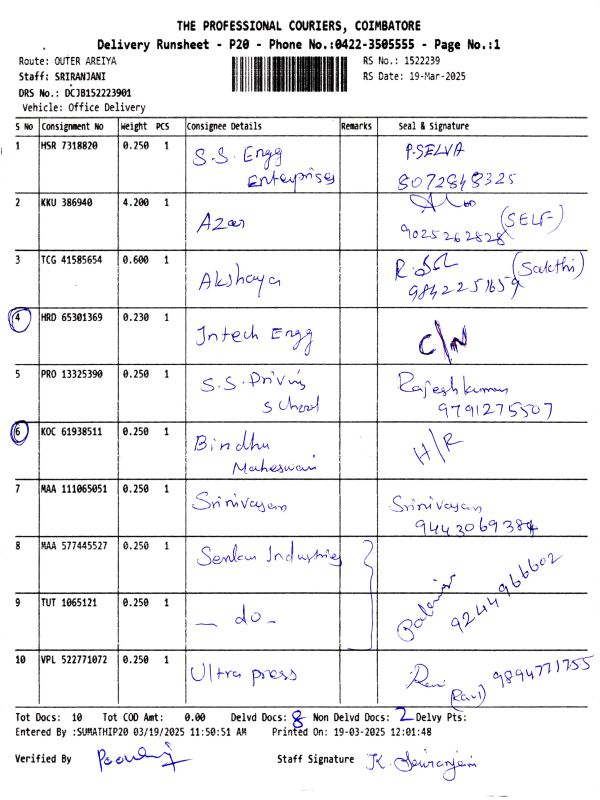 THE PROFESSIONAL COURIERS, COIMBATORE
Delivery Runsheet - P20 - Phone No.:0422-3505555 - Page No.:1
Route: OUTER AREIYA
RS No.: 1522239
Staff: SRIRANJANI
RS Date: 19-Mar-2025
DRS No.: DCJB152223901
Vehicle: Office Delivery
S No Consignment No Weight PCS Consignee Details Remarks Seal & Signature
1 HSR 7318820 0.250 1 S.S. Engg P.SELVA
Enterprises 8072848325
2 KKU 386940 4.200 1 Azar (SELF)
9025262828
3 TCG 41585654 0.600 1 Akshaya (Sakthi)
9842251659
4 HRD 65301369 0.230 1 Intech Engg C/N
5 PRO 13325390 0.250 1 S.S. Driving Rajeshkumar
School 9791275507
6 KOC 61938511 0.250 1 Bindhu H/R
Maheswari
7 MAA 111065051 0.250 1 Srinivasan Srinivasan
9443069384
8 MAA 577445527 0.250 1 Industries
9244966602
9 TUT 1065121 0.250 1 - do -
10 VPL 522771072 0.250 1 Ultra press 9894771755
(Ravi)
Tot Docs: 10 Tot COD Amt: 0.00 Delvd Docs: 8 Non Delvd Docs: 2 Delvy Pts:
Entered By :SUMATHIP20 03/19/2025 11:50:51 AM Printed On: 19-03-2025 12:01:48
Verified By Staff Signature